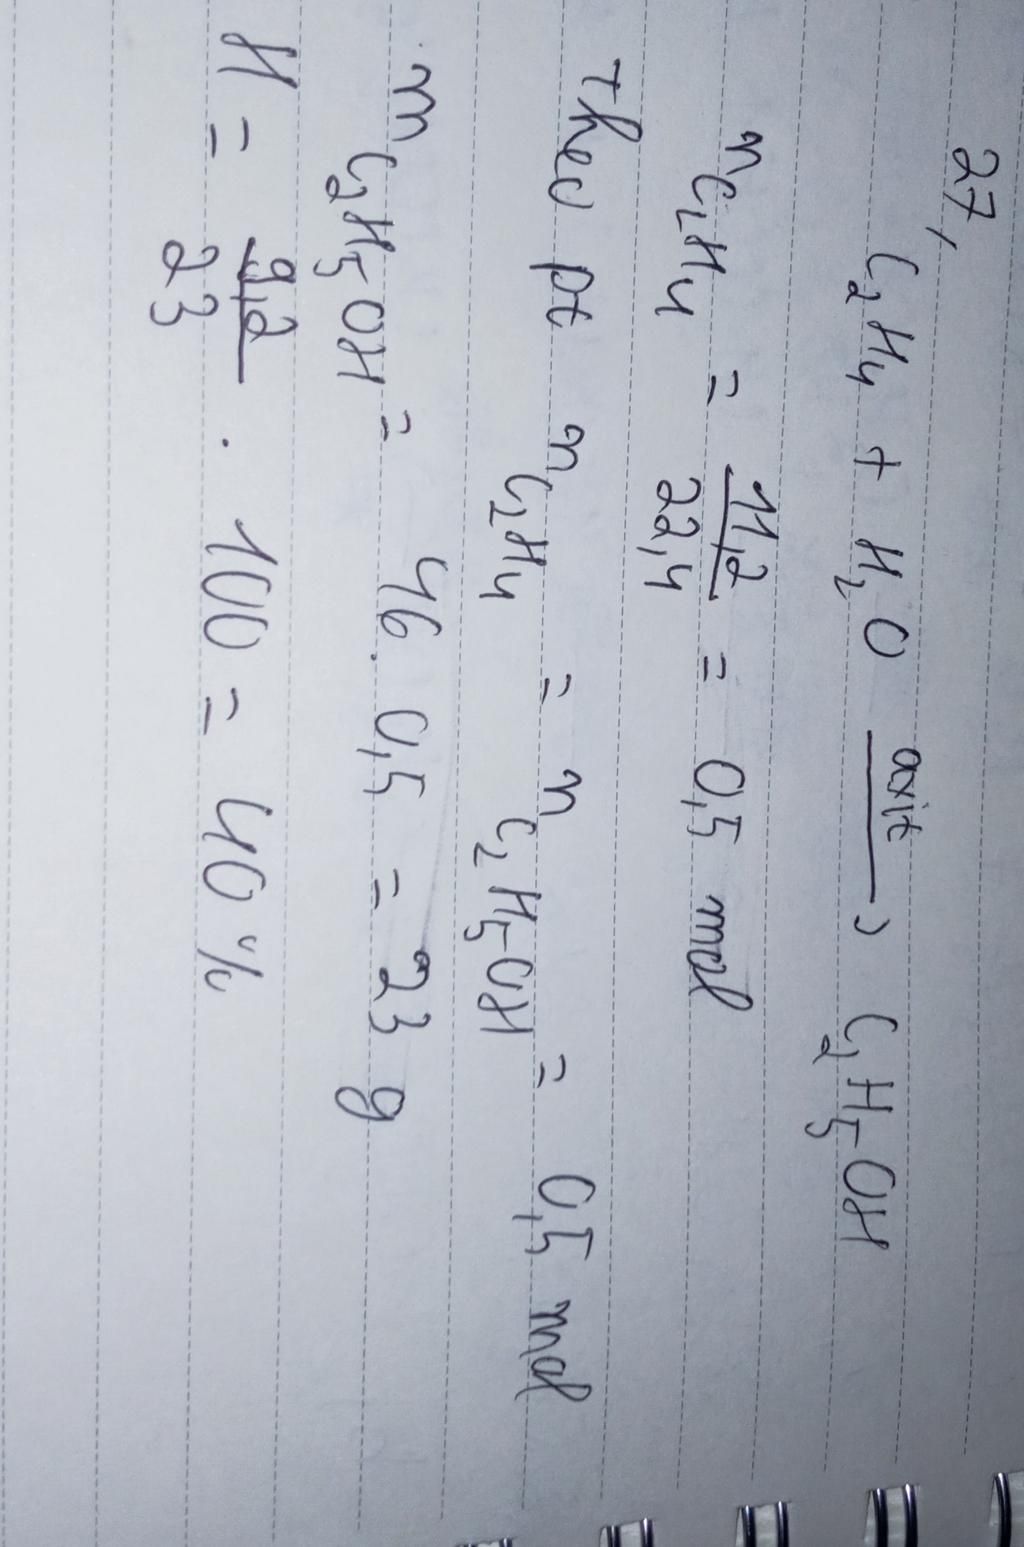 27,
C₂H₄ + H₂O axit → C₂H₅OH
n C₂H₄ = 11,2 / 22,4 = 0,5 mol
Theo pt n C₂H₄ = n C₂H₅OH = 0,5 mol
m C₂H₅OH = 46 . 0,5 = 23 g
H = 9,2 / 23 . 100 = 40 %